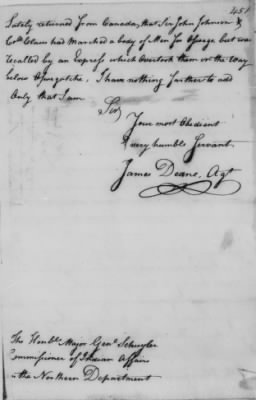 451
Lately returned from Canada, that Sir John Johnson &
Colo. Claus had Marched a body of Men for Oswego but was
recalled by an Express which Overtook them on the way
below Oswegotche. I have nothing farther to add
Only that I am
Sir
Your most Obedient
& very humble Servant.
James Deane, Agt
The Honble. Major Genl. Schuyler
Commissioner of Indian Affairs
n the Northern Department